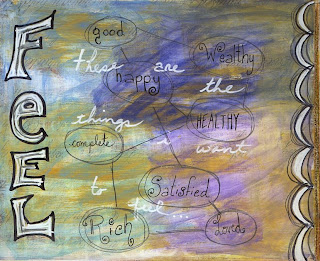 FeEL
good
Wealthy
these are the
happy
things I want
HEALTHY
complete
to feel...
Satisfied
Rich
Loved